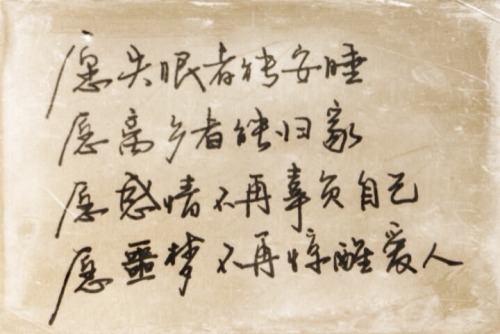 愿失眠者能安睡
愿离乡者能归家
愿感情不再辜负自己
愿噩梦不再惊醒爱人